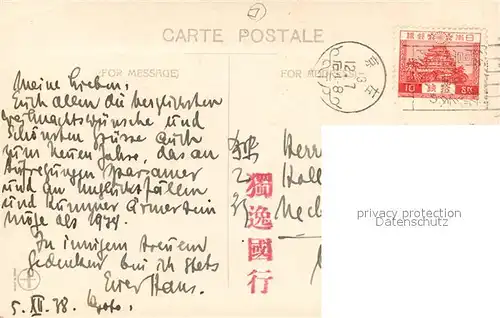 CARTE POSTALE
(FOR MESSAGE)
(FOR
Meine Lieben,
Euch allen die herzlichsten
Weihnachtswünsche und
schönsten Grüsse auch
zum neuen Jahre, das an
Aufregungen sparsamer
und an Unglücksfällen
und Kummer ärmer sein
möge als 1938.
In innigem treuem
Gedenken bin ich stets
Euer Hans.
5. XII. 38.
大日本帝國郵便
10
拾錢
京
13
12 7
Herr
獨逸國行
privacy protection
Datenschutz